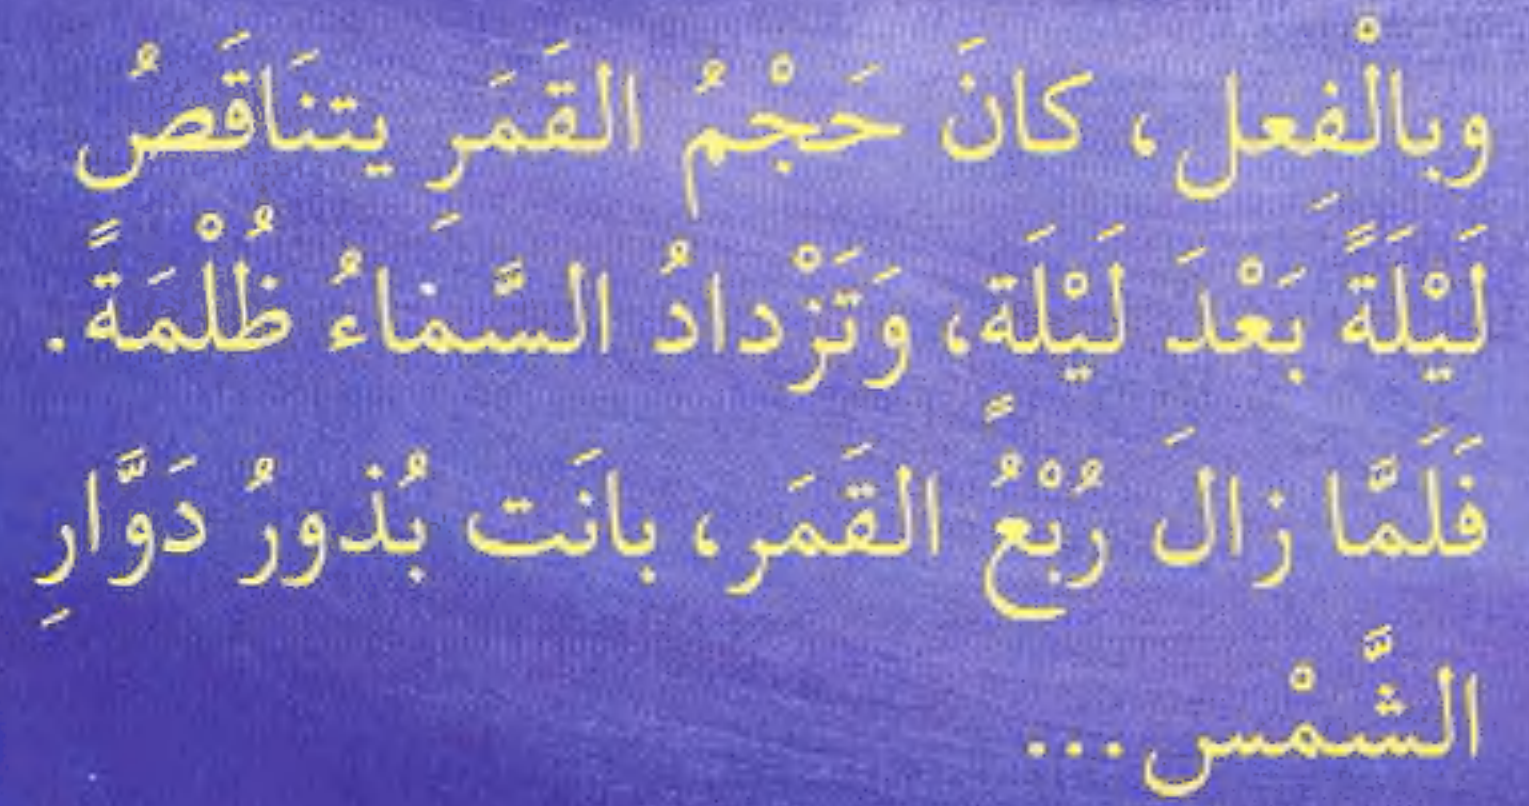 وبالْفِعل، كانَ حَجْمُ القَمَرِ يتنَاقَصُ
لَيْلَةً بَعْدَ لَيْلَةٍ، وَتَزْدادُ السَّماءُ ظُلْمَةً.
فَلَمَّا زالَ رُبْعُ القَمَر، بانَت بُذورُ دَوَّارِ
الشَّمْس...